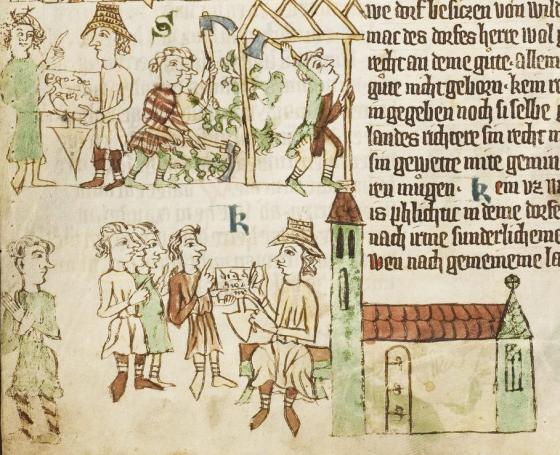 Ego·de
S
we dorf besiczen von wild
mac des dorfes herre wol
recht an deme gute. allein
gute nicht geborn. kein re
in gegeben noch si selbe
landes richtere sin recht
sin gewette mite
ren mugen. K ein vz w
is phlichtic in deme dorfe
nach irme sunderlicheme
wen nach gemeineme la
K